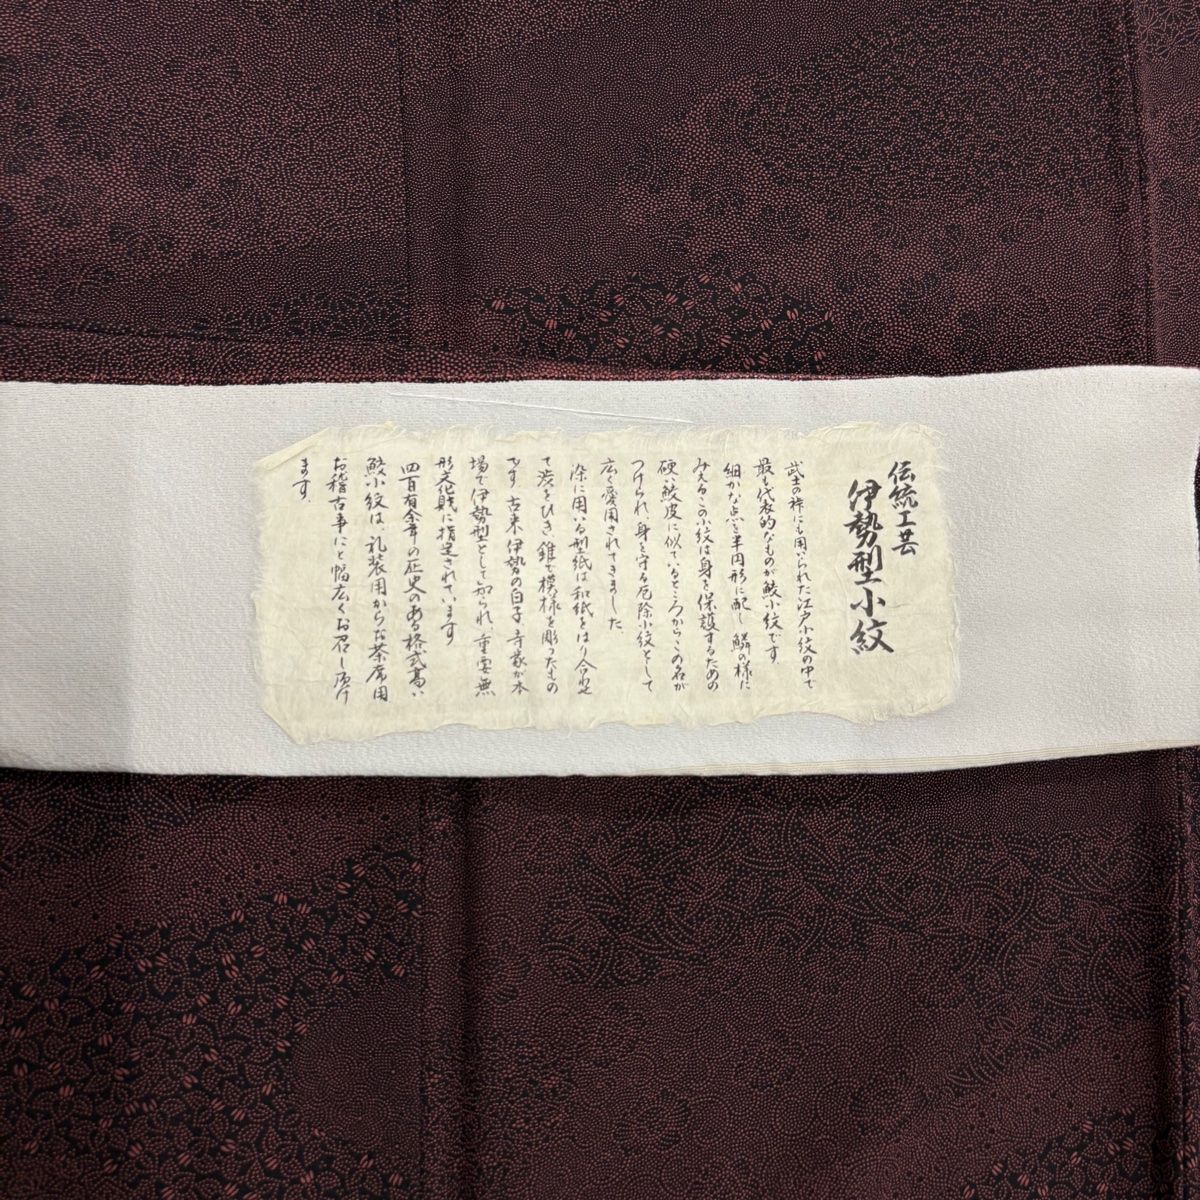 伝統工芸
伊勢型小紋
武士の裃にも用いられた江戸小紋の中で
最も代表的なものが鮫小紋です
細かな点を半円形に配し鱗の様に
みえるこの小紋は身を保護するための
硬い鮫皮に似ているところからこの名が
つけられ、身を守る厄除小紋として
広く愛用されてきました。
染に用いる型紙は和紙をはり合わせ
て渋をひき、錐で模様を彫ったもの
です。古来、伊勢の白子、寺家が本
場で伊勢型として知られ、重要無
形文化財に指定されています。
四百有余年の歴史のある格式高い
鮫小紋は、礼装用からお茶席用
お稽古事にと幅広くお召し頂け
ます。